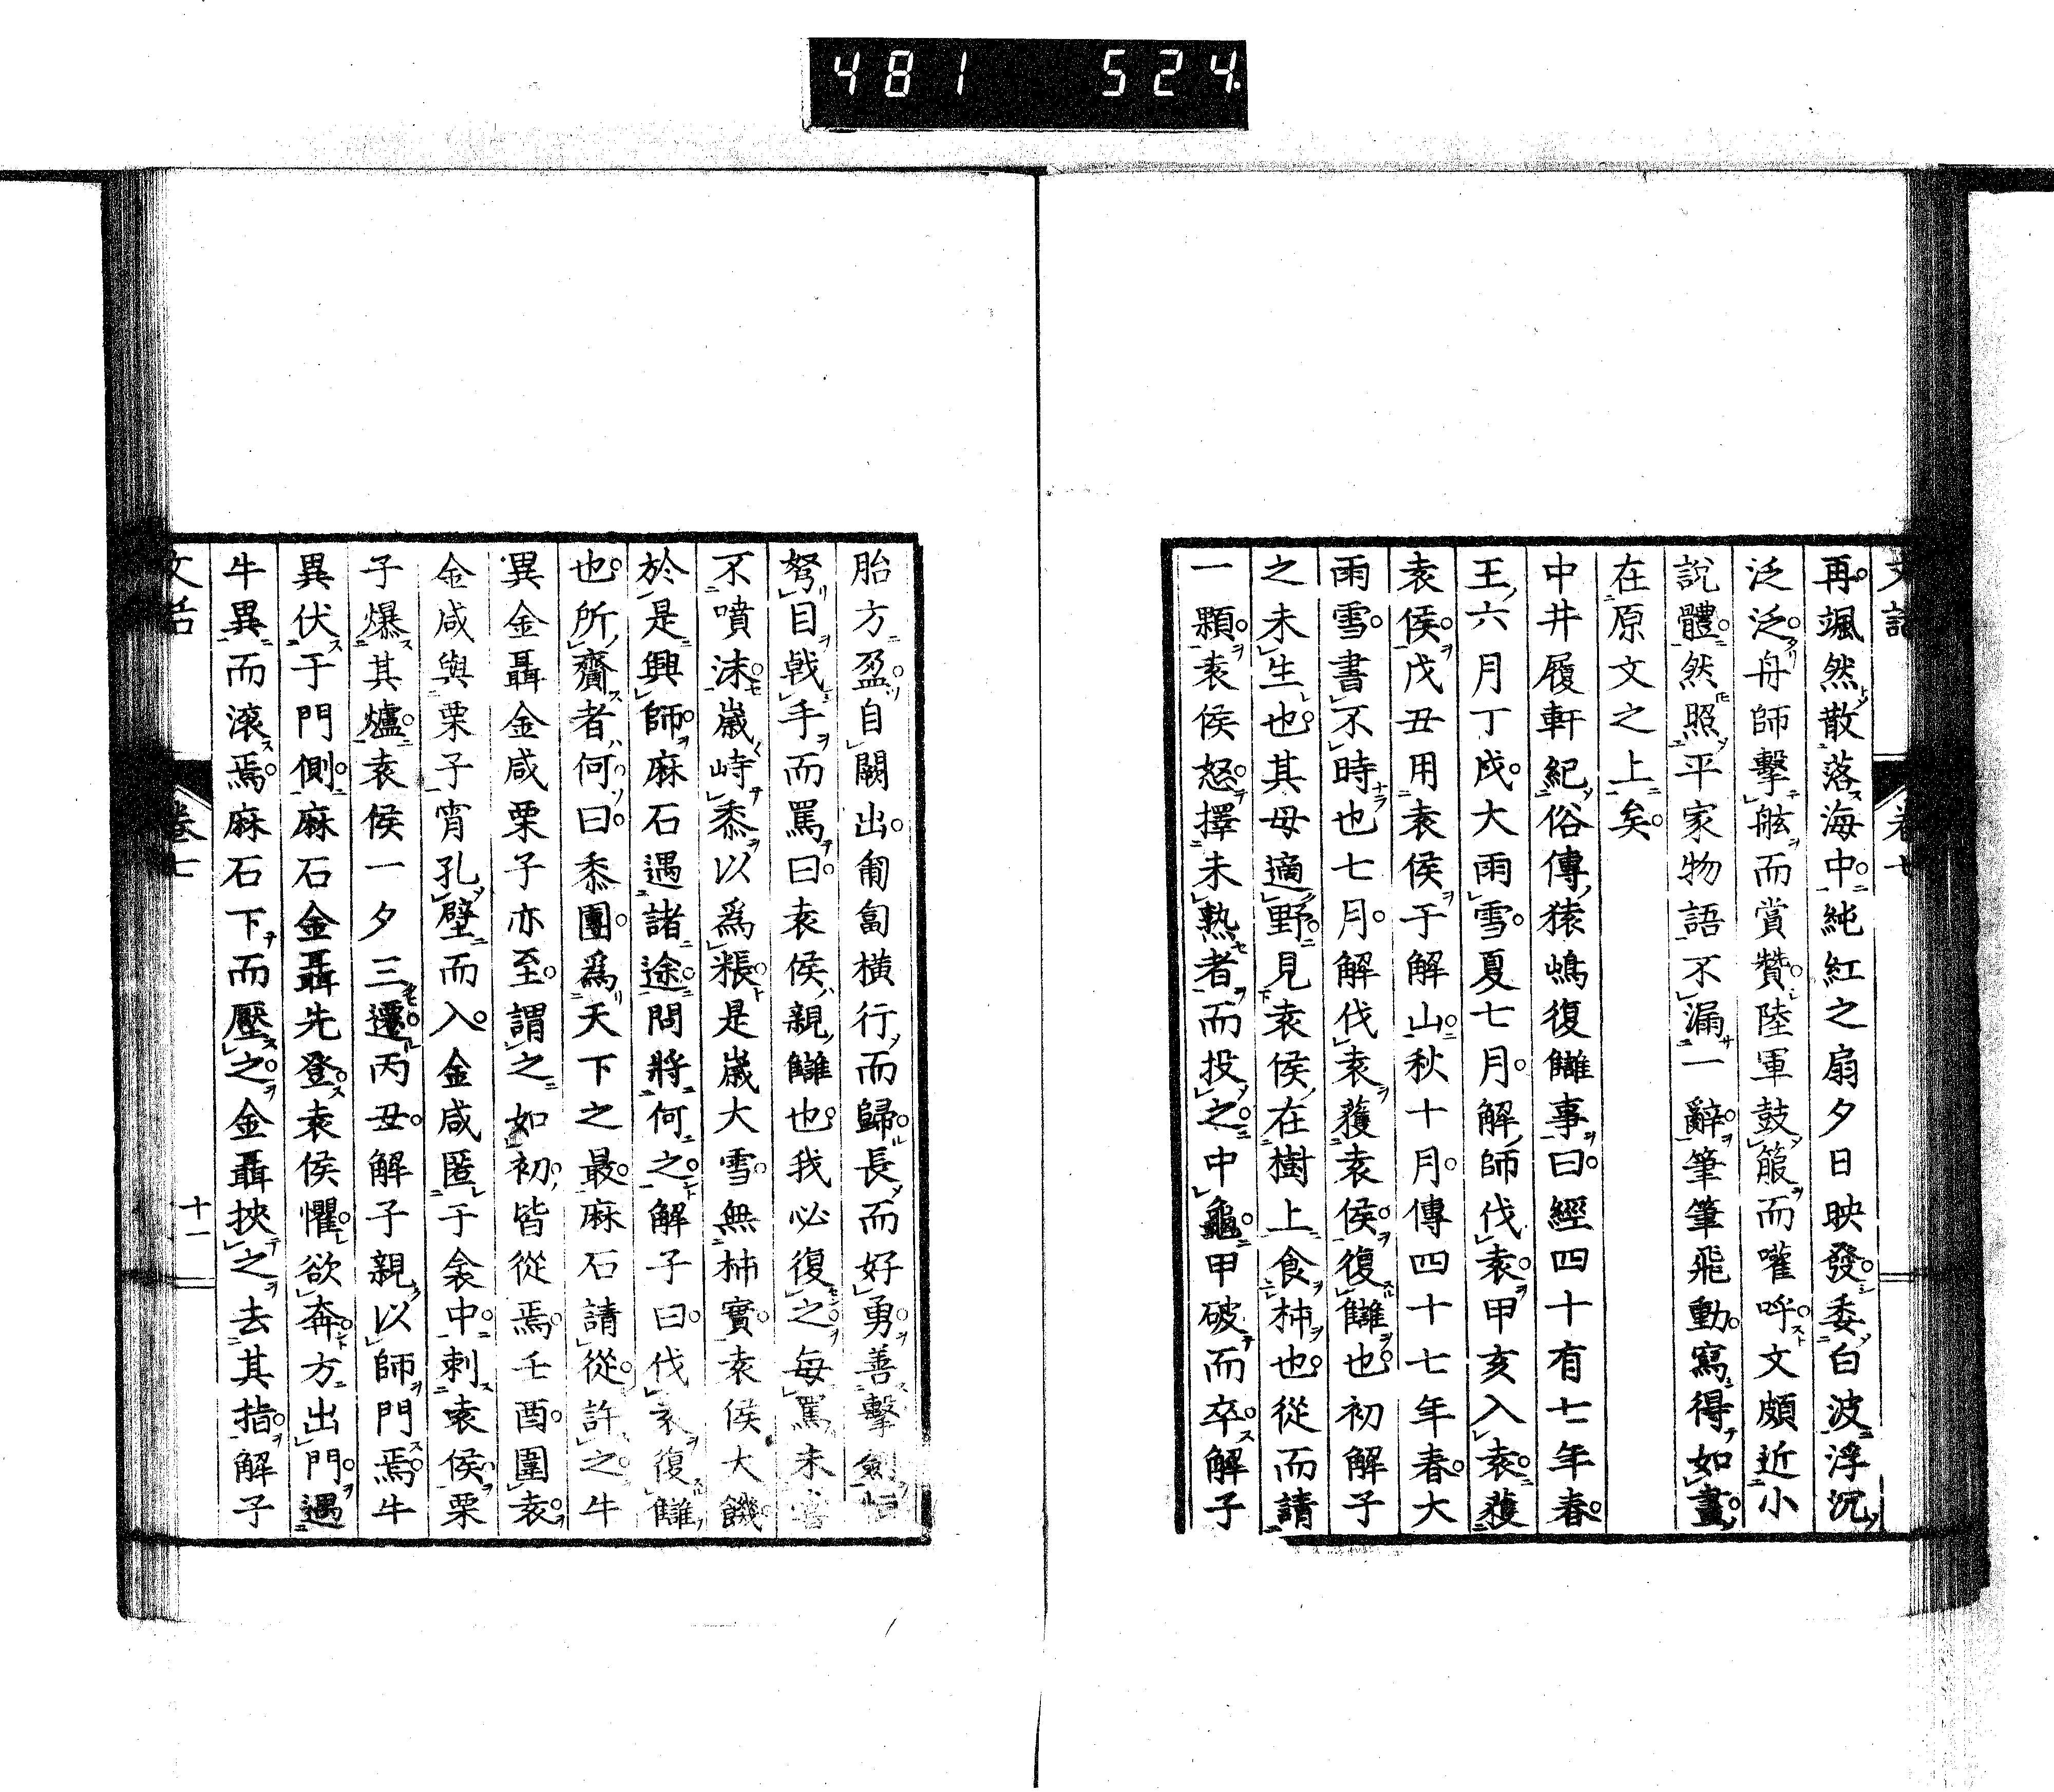 481 524
文話 卷七
再颯然散落海中純紅之扇夕日映發委白波浮沉
泛泛舟師擊舷而賞贊陸軍鼓箙而嚾呼文頗近小
說體然照平家物語不漏一辭筆筆飛動寫得如畫
在原文之上矣
中井履軒紀俗傳猿嶋復讎事曰經四十有七年春
王六月丁戌大雨雪夏七月解師伐袁甲亥入袁獲
袁侯戊丑用袁侯于解山秋十月傳四十七年春大
雨雪書不時也七月解伐袁獲袁侯復讎也初解子
之未生也其母適野見袁侯在樹上食柿也從而請
一顆袁侯怒擇未熟者而投之中龜甲破而卒解子
胎方盈自闢出匍匐橫行而歸長而好勇善擊劍恒
弩目戟手而罵曰袁侯親讎也我必復之每罵未嘗
不噴沫歲峙黍以為粻是歲大雪無柿實袁侯大饑
於是興師麻石遇諸途問將何之解子曰伐袁復讎
也所齎者何曰黍團為天下之最麻石請從許之牛
異金聶金咸栗子亦至謂之如初皆從焉壬酉圍袁
金咸與栗子宵孔壁而入金咸匿于衾中刺袁侯栗
子爆其爐袁侯一夕三遷丙丑解子親以師門焉牛
異伏于門側麻石金聶先登袁侯懼欲奔方出門遇
牛異而滚焉麻石下而壓之金聶挾之去其指解子
文話 卷七 十一